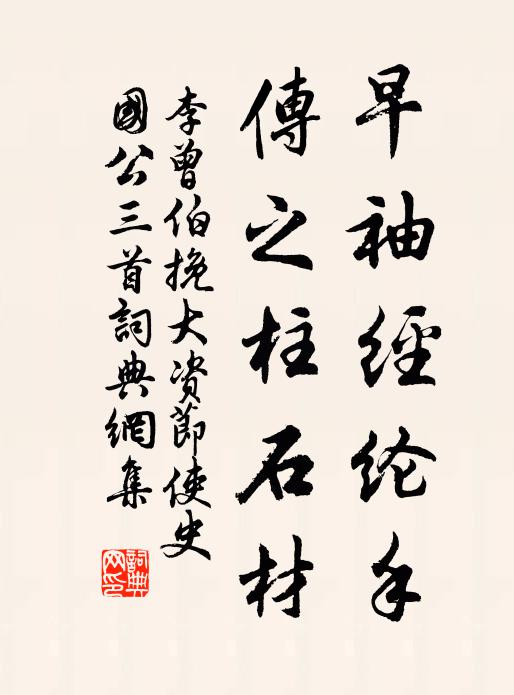 早袖經纶手
傳之柱石材
李曾伯挽大资節使史
國公三首詞典網集
詞典网印